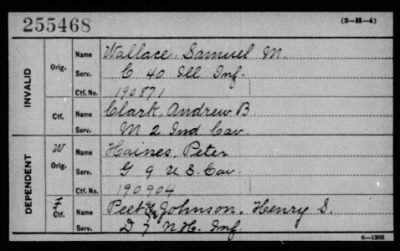 255468
(3-H-4)
INVALID
Orig.
Name Wallace, Samuel M.
Serv. C 40 Ill Inf.
Ctf. No. 190871
Ctf.
Name Clark, Andrew B
Serv. M 2 Ind Cav.
DEPENDENT
W
Orig.
Name Haines, Peter
Serv. G 9 U S. Cav.
Ctf. No. 190904
Ctf.
Name Peet Johnson, Henry S.
Serv. D 7 N.H. Inf
6-1303